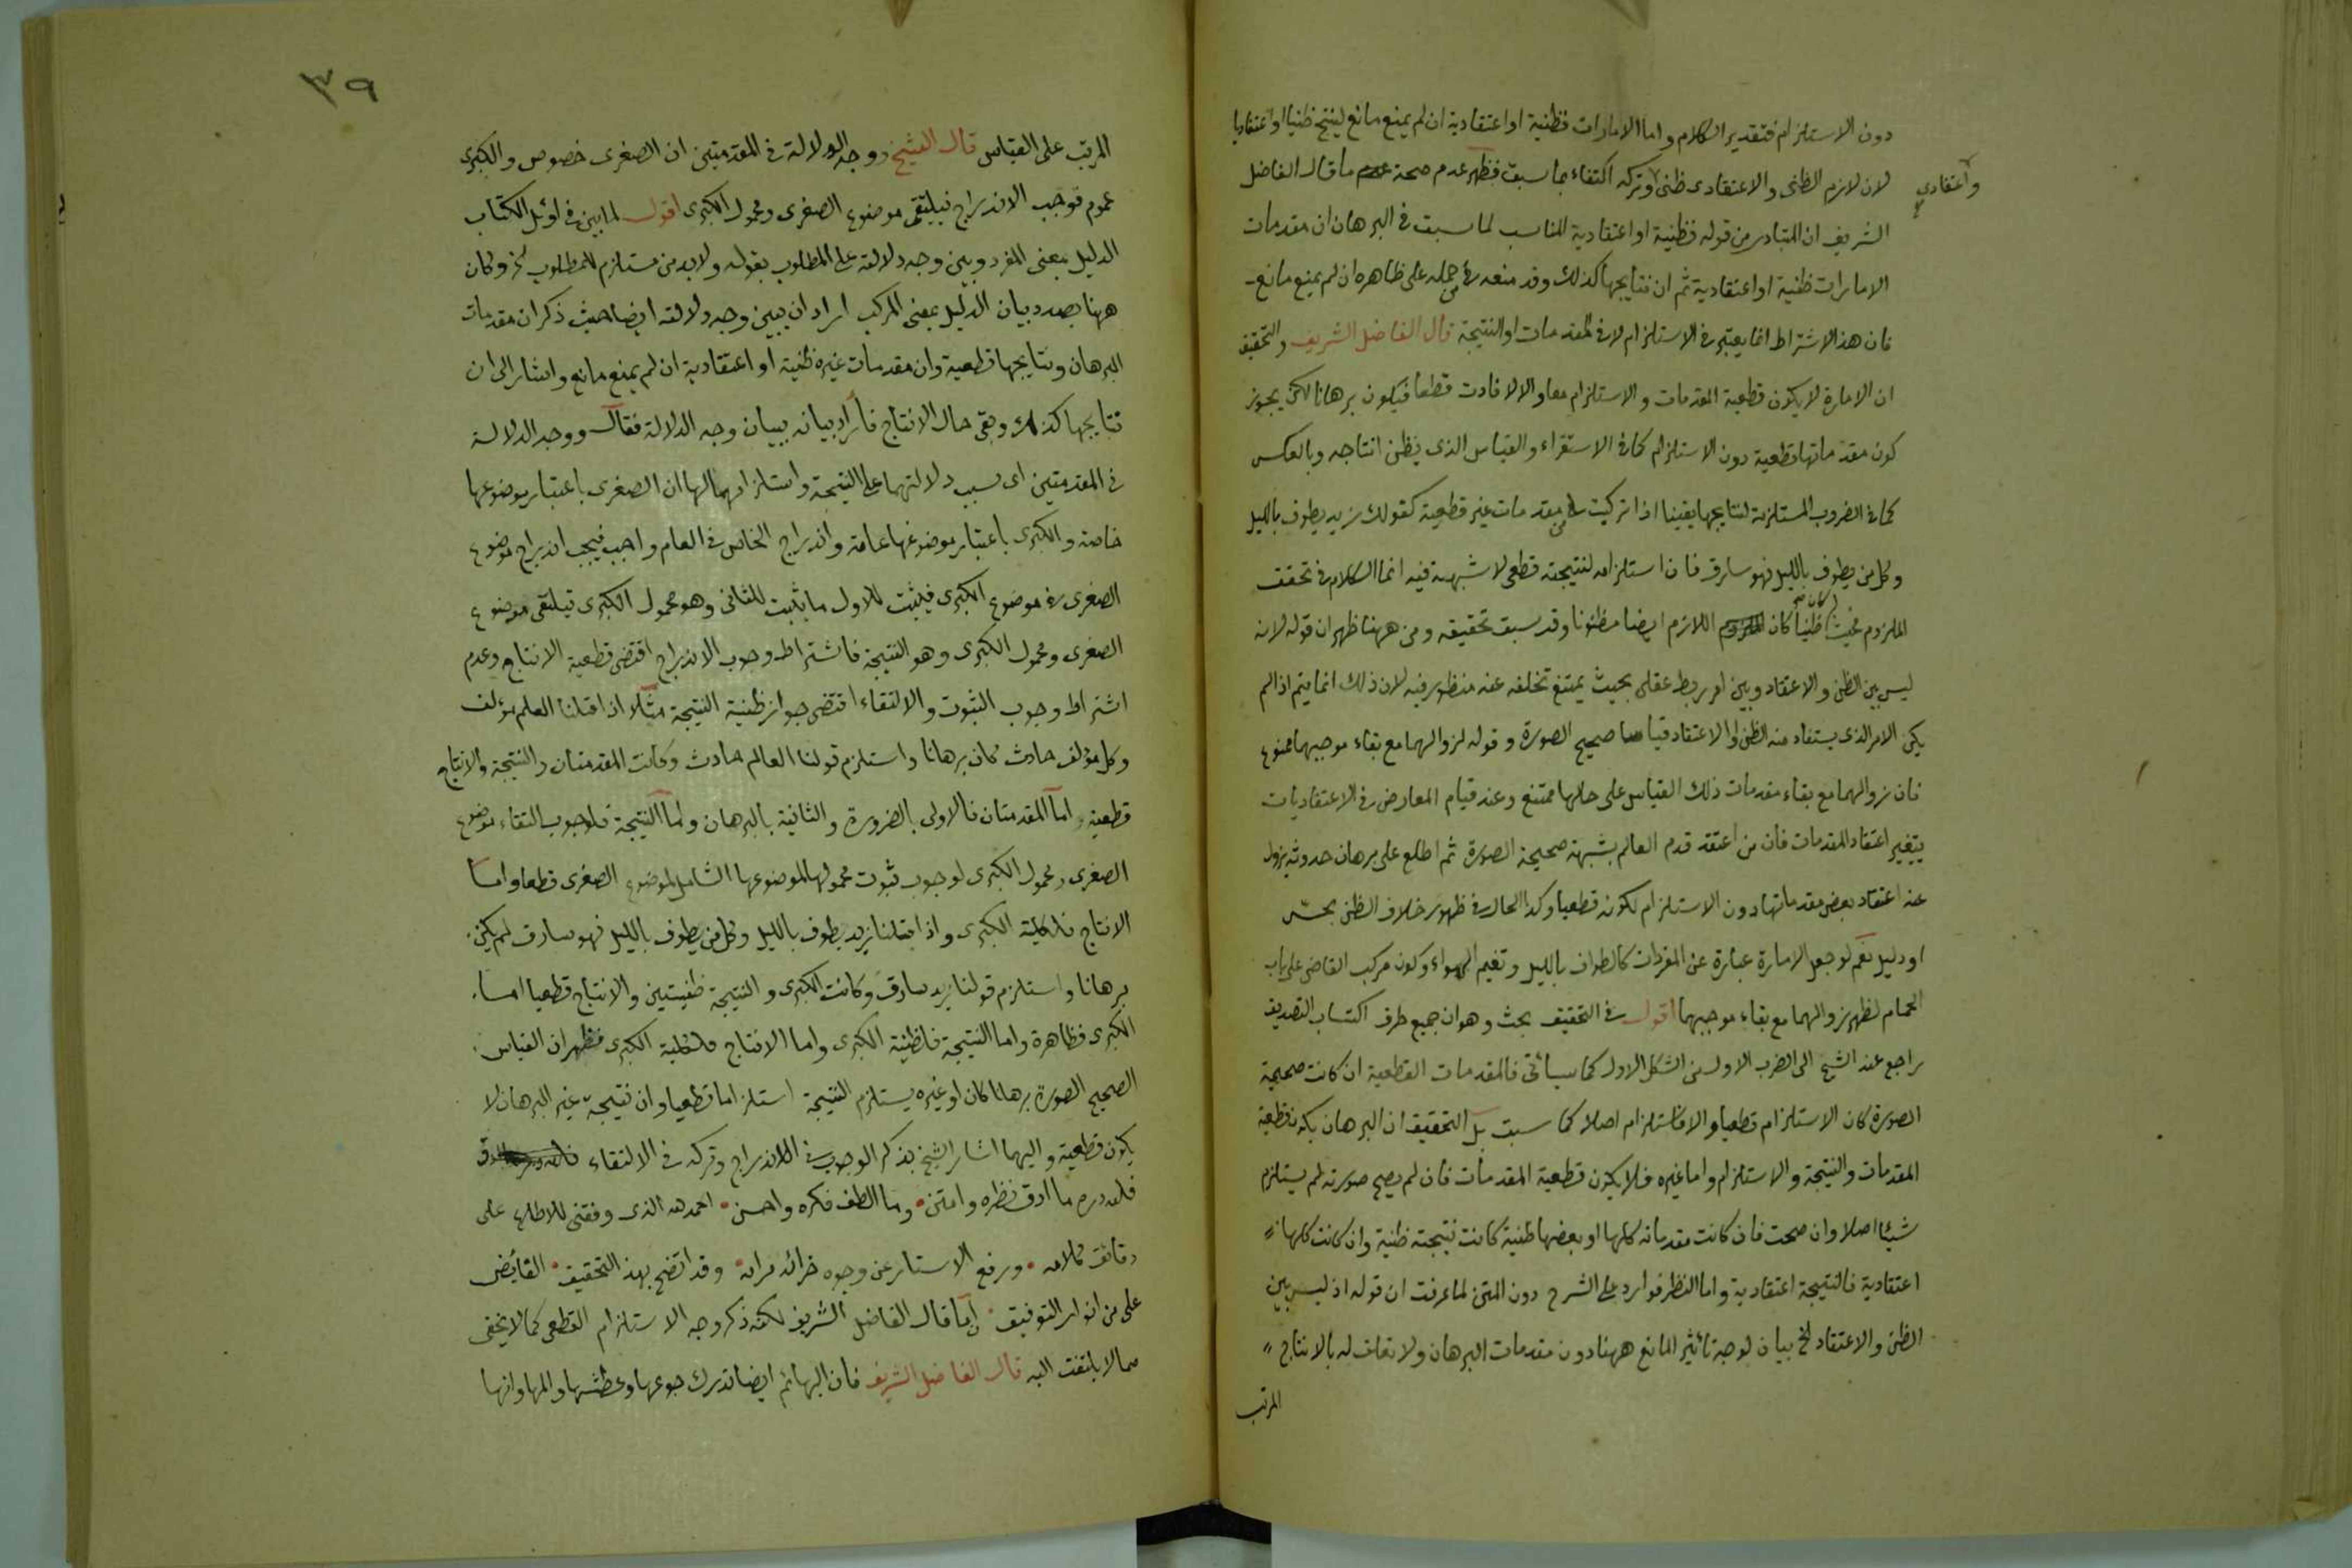 دون الاستلزام فتقدير الكلام واما الامارات فظنية او اعتقادية ان لم يمنع مانع لينتج ظنيا او اعتقاديا
لان لازم الظنى والاعتقادى ظنى وتركه اكتفاء بما سبق فظهر عدم صحة ما قال الفاضل
واعتقادي
الشريف ان المتبادر من قوله فظنية او اعتقادية المناسب لما سبق فى البرهان ان مقدمات
الامارات ظنية او اعتقادية ثم ان نتايجها كذلك وقد منعه من حمله على ظاهره ان لم يمنع مانع
فان هذا الاشتراط انما يعتبر فى الاستلزام لا فى المقدمات او النتيجة قال الفاضل الشريف والتحقيق
ان الامارة لا يكون قطعية المقدمات والاستلزام معا والا لافادت قطعا فيكون برهانا لكن يجوز
كون مقدماتها قطعية دون الاستلزام كما فى الاستقراء والقياس الذى يظن انتاجه وبالعكس
كما فى الضروب المستلزمة لنتايجها يقينا اذا تركبت من مقدمات غير قطعية كقولك زيد يطوف بالليل
وكل من يطوف بالليل فهو سارق فان استلزامه لنتيجته قطعى لا شبهة فيه انما الكلام فى تحقق
الملزوم فحيث كان ظنيا كان اللازم ايضا مظنونا وقد سبق تحقيقه ومن ههنا ظهر ان قوله لانه
ليس بين الظن والاعتقاد وبين امر ربط عقلى بحيث يمتنع تخلفه عنه منظور فيه لان ذلك انما يتم اذا لم
يكن الامر الذى يستفاد منه الظن او الاعتقاد قياسا صحيح الصورة وقوله لزوالهما مع بقاء موجبهما ممنوع
فان زوالهما مع بقاء مقدمات ذلك القياس على حالها ممتنع وعند قيام المعارض فى الاعتقاديات
يتغير اعتقاد المقدمات فان من اعتقد قدم العالم بشبهة صحيحة الصورة ثم اطلع على برهان حدوثه يزول
عنه اعتقاد بعض مقدماتها دون الاستلزام لكونه قطعيا وكذا الحال فى ظهور خلاف الظن بحس
او دليل نعم لو جعل الامارة عبارة عن المفردات كالطواف بالليل وتغيم الهواء وكون مركب القاضى على باب
الحمام لظهر زوالهما مع بقاء موجبهما اقول فى التحقيق بحث وهو ان جميع طرق اكتساب التصديق
راجع عند الشيخ الى الضرب الاول من الشكل الاول كما سيأتى فالمقدمات القطعية ان كانت صحيحة
الصورة كان الاستلزام قطعيا والا فلا استلزام اصلا كما سبق بل التحقيق ان البرهان يكون قطعية
المقدمات والنتيجة والاستلزام واما غيره فلا يكون قطعية المقدمات فان لم يصح صورته لم يستلزم
شيئا اصلا وان صحت فان كانت مقدماته كلها او بعضها ظنية كانت نتيجته ظنية وان كانت كلها
اعتقادية فالنتيجة اعتقادية واما النظر فوارد على الشرح دون المتن لما عرفت ان قوله اذ ليس بين
الظن والاعتقاد الخ بيان لوجه تأثير المانع ههنا دون مقدمات البرهان ولا تعلق له بالانتاج
المرتب
٣٩
المرتب على القياس قال الشيخ ووجه الدلالة فى المقدمتين ان الصغرى خصوص والكبرى
عموم فوجب الاندراج فيلتقى موضوع الصغرى ومحمول الكبرى اقول لما بين فى اوئل الكتاب
الدليل بمعنى المفرد وبين وجه دلالته على المطلوب بقوله ولا بد من مستلزم للمطلوب الخ وكان
ههنا بصدد بيان الدليل بمعنى المركب اراد ان يبين وجه دلالته ايضا حيث ذكر ان مقدمات
البرهان ونتايجها قطعية وان مقدمات غيره ظنية او اعتقادية ان لم يمنع مانع واشار الى ان
نتايجها كذلك وبقى حال الانتاج فأراد بيانه ببيان وجه الدلالة فقال ووجه الدلالة
فى المقدمتين اى سبب دلالتهما على النتيجة واستلزامهما لها ان الصغرى باعتبار موضوعها
خاصة والكبرى باعتبار موضوعها عامة واندراج الخاص فى العام واجب فيجب اندراج موضوع
الصغرى فى موضوع الكبرى فيثبت للاول ما يثبت للثانى وهو محمول الكبرى فيلتقى موضوع
الصغرى ومحمول الكبرى وهو النتيجة فاشتراط وجوب الاندراج اقتضى قطعية الانتاج وعدم
اشتراط وجوب الثبوت والالتقاء اقتضى جواز ظنية النتيجة مثلا اذا قلنا العالم مؤلف
وكل مؤلف حادث كان برهانا واستلزم قولنا العالم حادث وكانت المقدمتان والنتيجة والانتاج
قطعية اما المقدمتان فالاولى بالضرورة والثانية بالبرهان واما النتيجة فلوجوب التقاء موضوع
الصغرى ومحمول الكبرى لوجوب ثبوت محمولها لموضوعها الشامل لموضوع الصغرى قطعا واما
الانتاج فلكلية الكبرى واذا قلنا زيد يطوف بالليل وكل من يطوف بالليل فهو سارق لم يكن
برهانا واستلزم قولنا زيد سارق وكانت الكبرى والنتيجة ظنيتين والانتاج قطعيا اما
الكبرى فظاهرة واما النتيجة فلظنية الكبرى واما الانتاج فلكلية الكبرى فظهر ان القياس
الصحيح الصورة برهانا كان او غيره يستلزم النتيجة استلزاما قطعيا وان نتيجة غير البرهان لا
يكون قطعية واليهما اشار الشيخ بذكر الوجوب فى الاندراج وتركه فى الالتقاء
فلله دره ما ادق نظره وامتن وما الطف فكره واحسن احمد الله الذى وفقنى للاطلاع على
دقائق كلامه ورفع الاستار عن وجوه خرائد مرامه وقد اتضح بهذا التحقيق الفايض
على من انوار التوفيق ان ما قال الفاضل الشريف لكنه ذكر وجه الاستلزام القطعى كما لا يخفى
مما لا يلتفت اليه قال الفاضل الشريف فان البهائم ايضا تدرك جوعها وعطشها والمها وانها